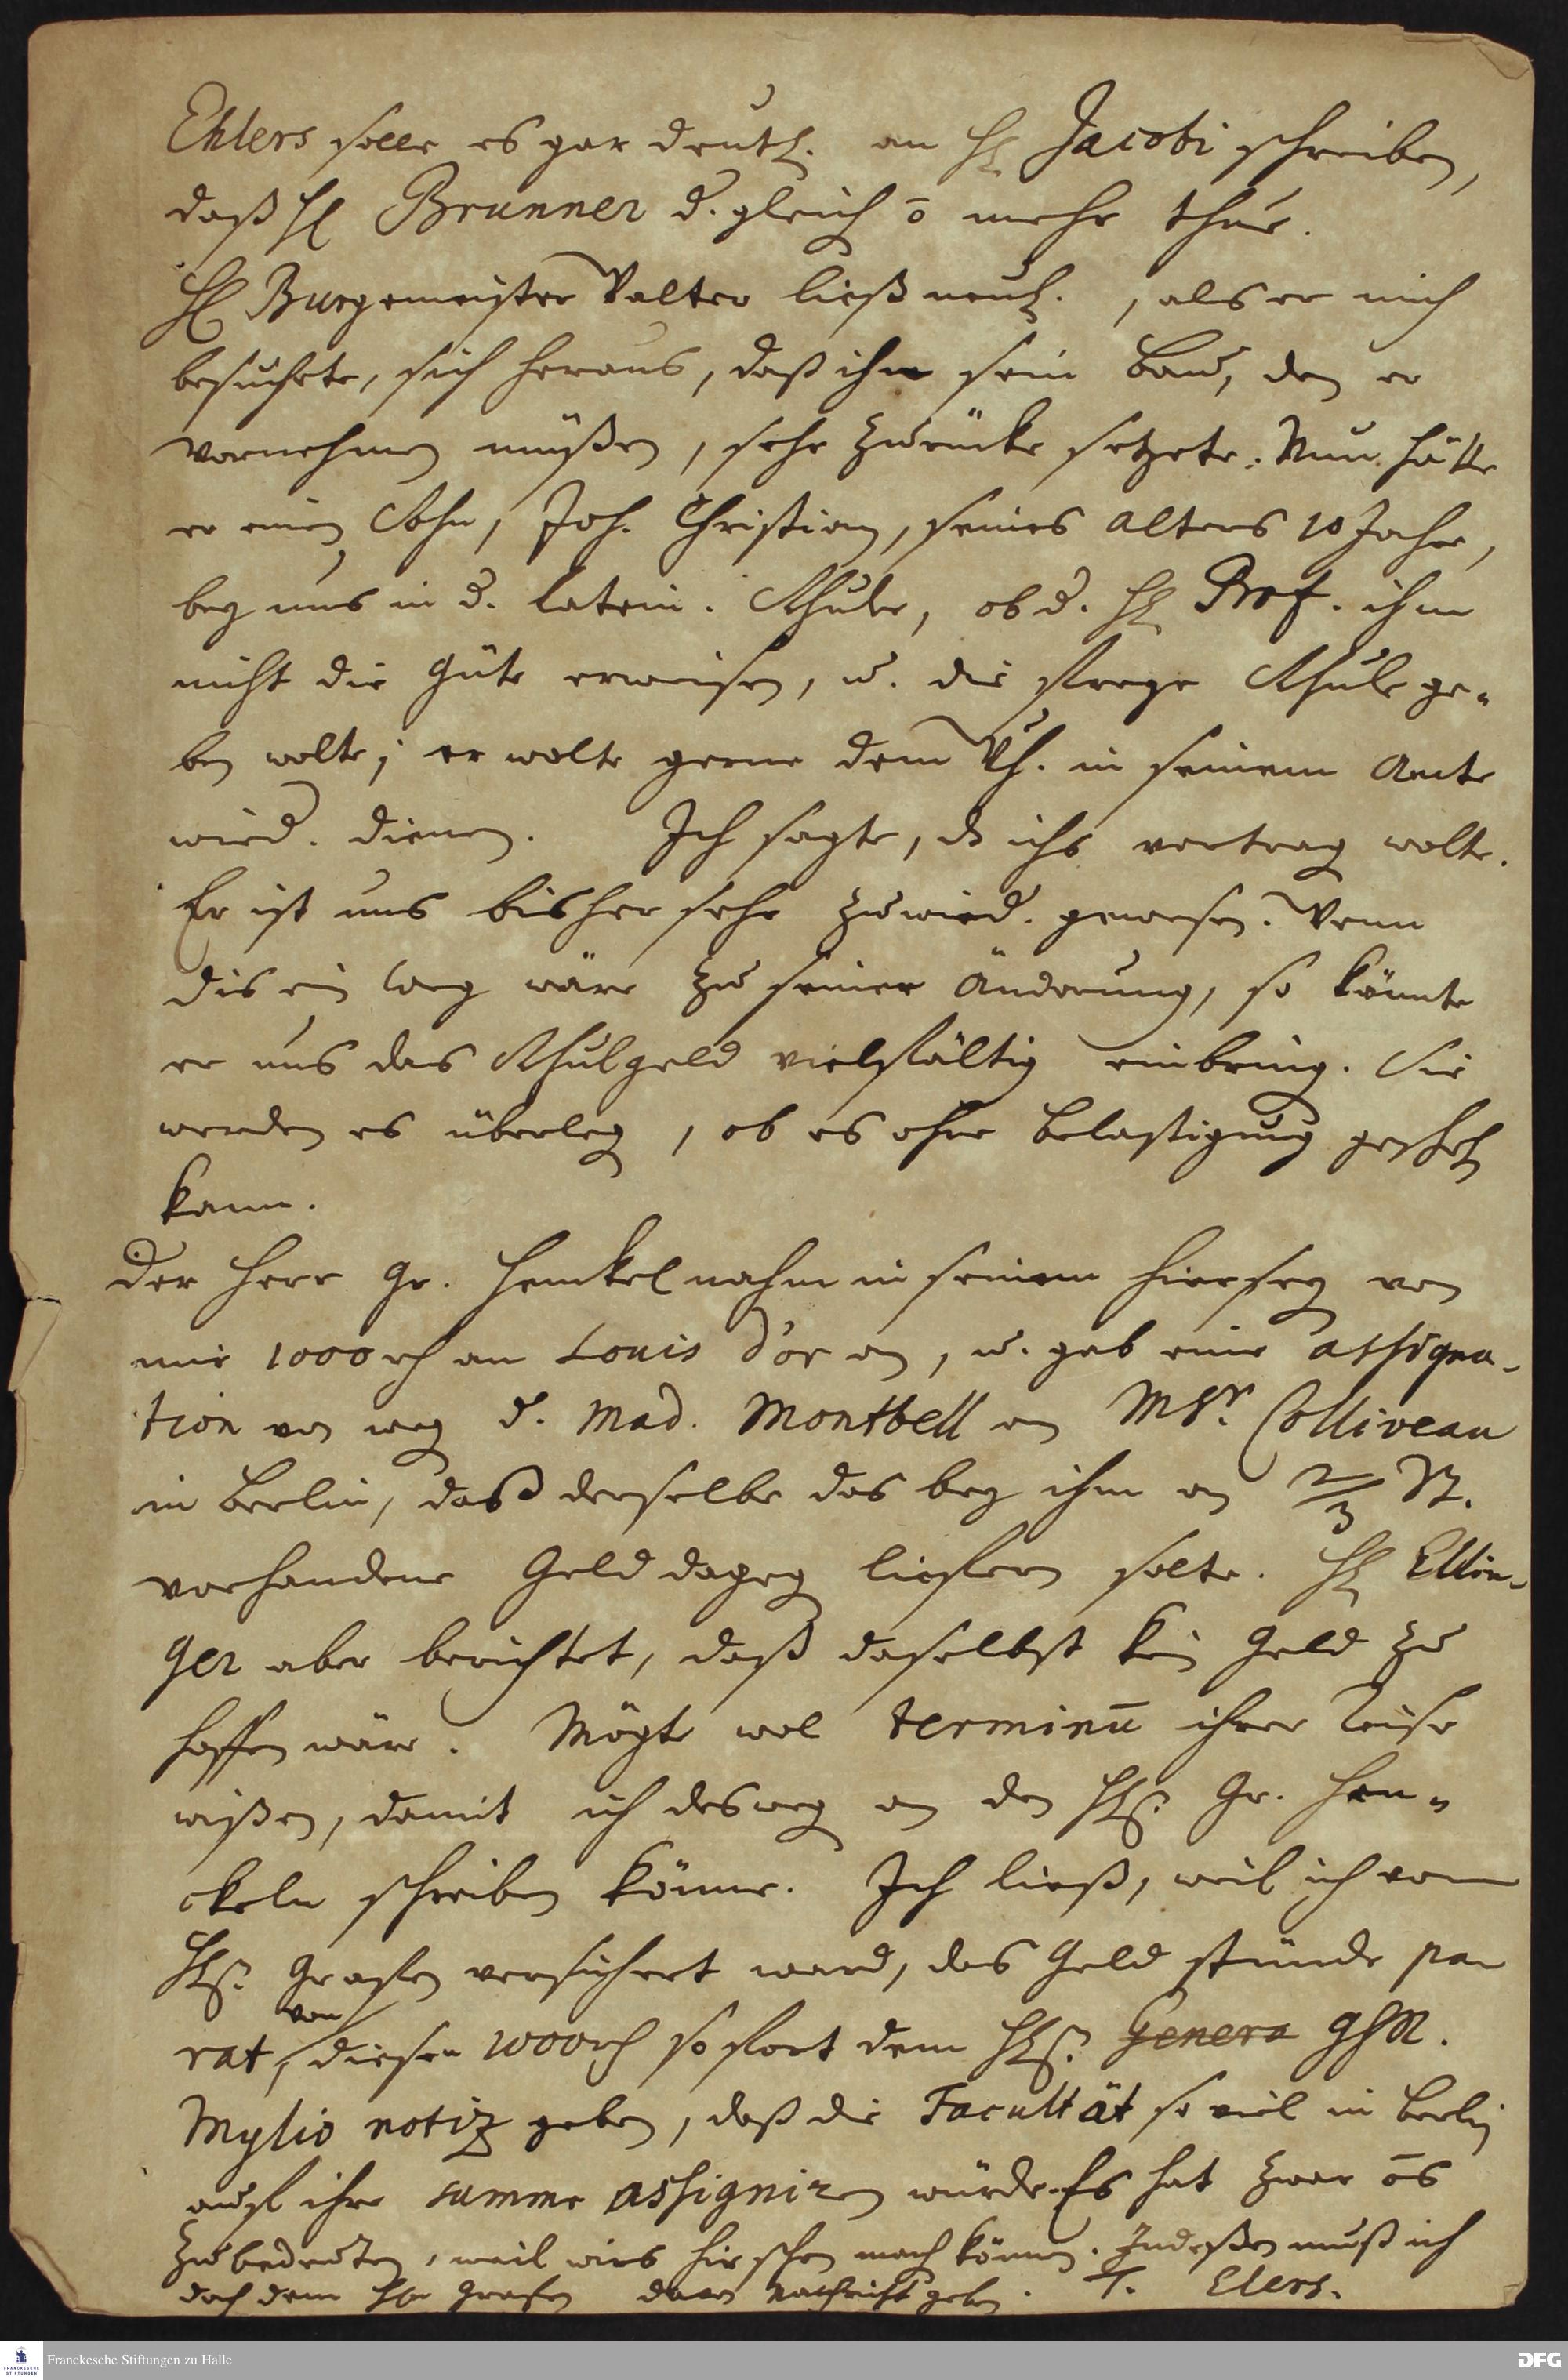 Ehlers solle es gar deutl. an H. Jacobi schreiben,
daß H. Brunner d. gleich ō mehr thue.
H. Burgemeister Valter ließ neul., als er mich
besuchete, sich heraus, daß ihn sein Bau, den er
vornehmen müßen, sehr zurücke setzete. Nun hätte
er einen Sohn, Joh. Christian, seines Alters 10 Jahre,
bey uns in d. latein. Schule, ob d. H. Prof. ihm
nicht die Güte erweisen, u. die freye Schule ge-
ben wolte; er wolte gerne dem Wh. in seinem Amte
wied. dienen. Ich sagte, dß ichs vortragen wolte.
Er ist uns bisher sehr zuwied. gewesen. Wenn
dis ein Weg wäre zu seiner Änderung, so könnte
er uns das Schulgeld vielfältig einbring. Sie
werden es überleg, ob es ohne Belästigung gescheh
kann.
Der Herr Gr. Henckel nahm in seinem Hierseyn von
mir 1000 rh an Louis d'or an, u. gab eine assigna-
tion von weg d. Mad. Montbell an Msr. Colliveau
in Berlin, daß derselbe das bey ihm an 2/3 St.
vorhandene Geld dageg liefern solte. H. Ellin-
ger aber berichtet, daß daselbst kein Geld zu
hoffen wäre. Mögte wol terminū ihrer Reise
wißen, damit ich desweg an den H. Gr. Hen-
ckeln schreiben könne. Ich ließ, weil ich vom
H. Grafen versichert ward, das Geld stünde pa-
rat, von diesen 1000 rh sofort dem H. Genera GhR.
Mylio notiz geben, daß die Facultät so viel in Berlin
auf ihre summe assigniren würde. Es hat zwar ōs
zubedeuten, weil wirs hie schon mach können. Indeßen muß ich
doch dem Hn Grafen davon nachricht geben. T. Elers.
Franckesche Stiftungen zu Halle
FRANCKESCHE STIFTUNGEN
DFG